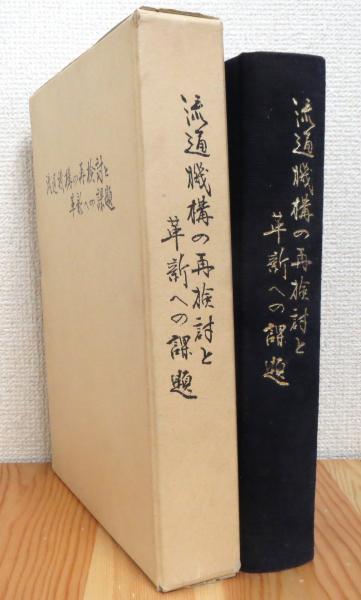 流通機構の再検討と
革新への課題
流通機構の再検討と
革新への課題
流通機構の再検討と
革新への課題